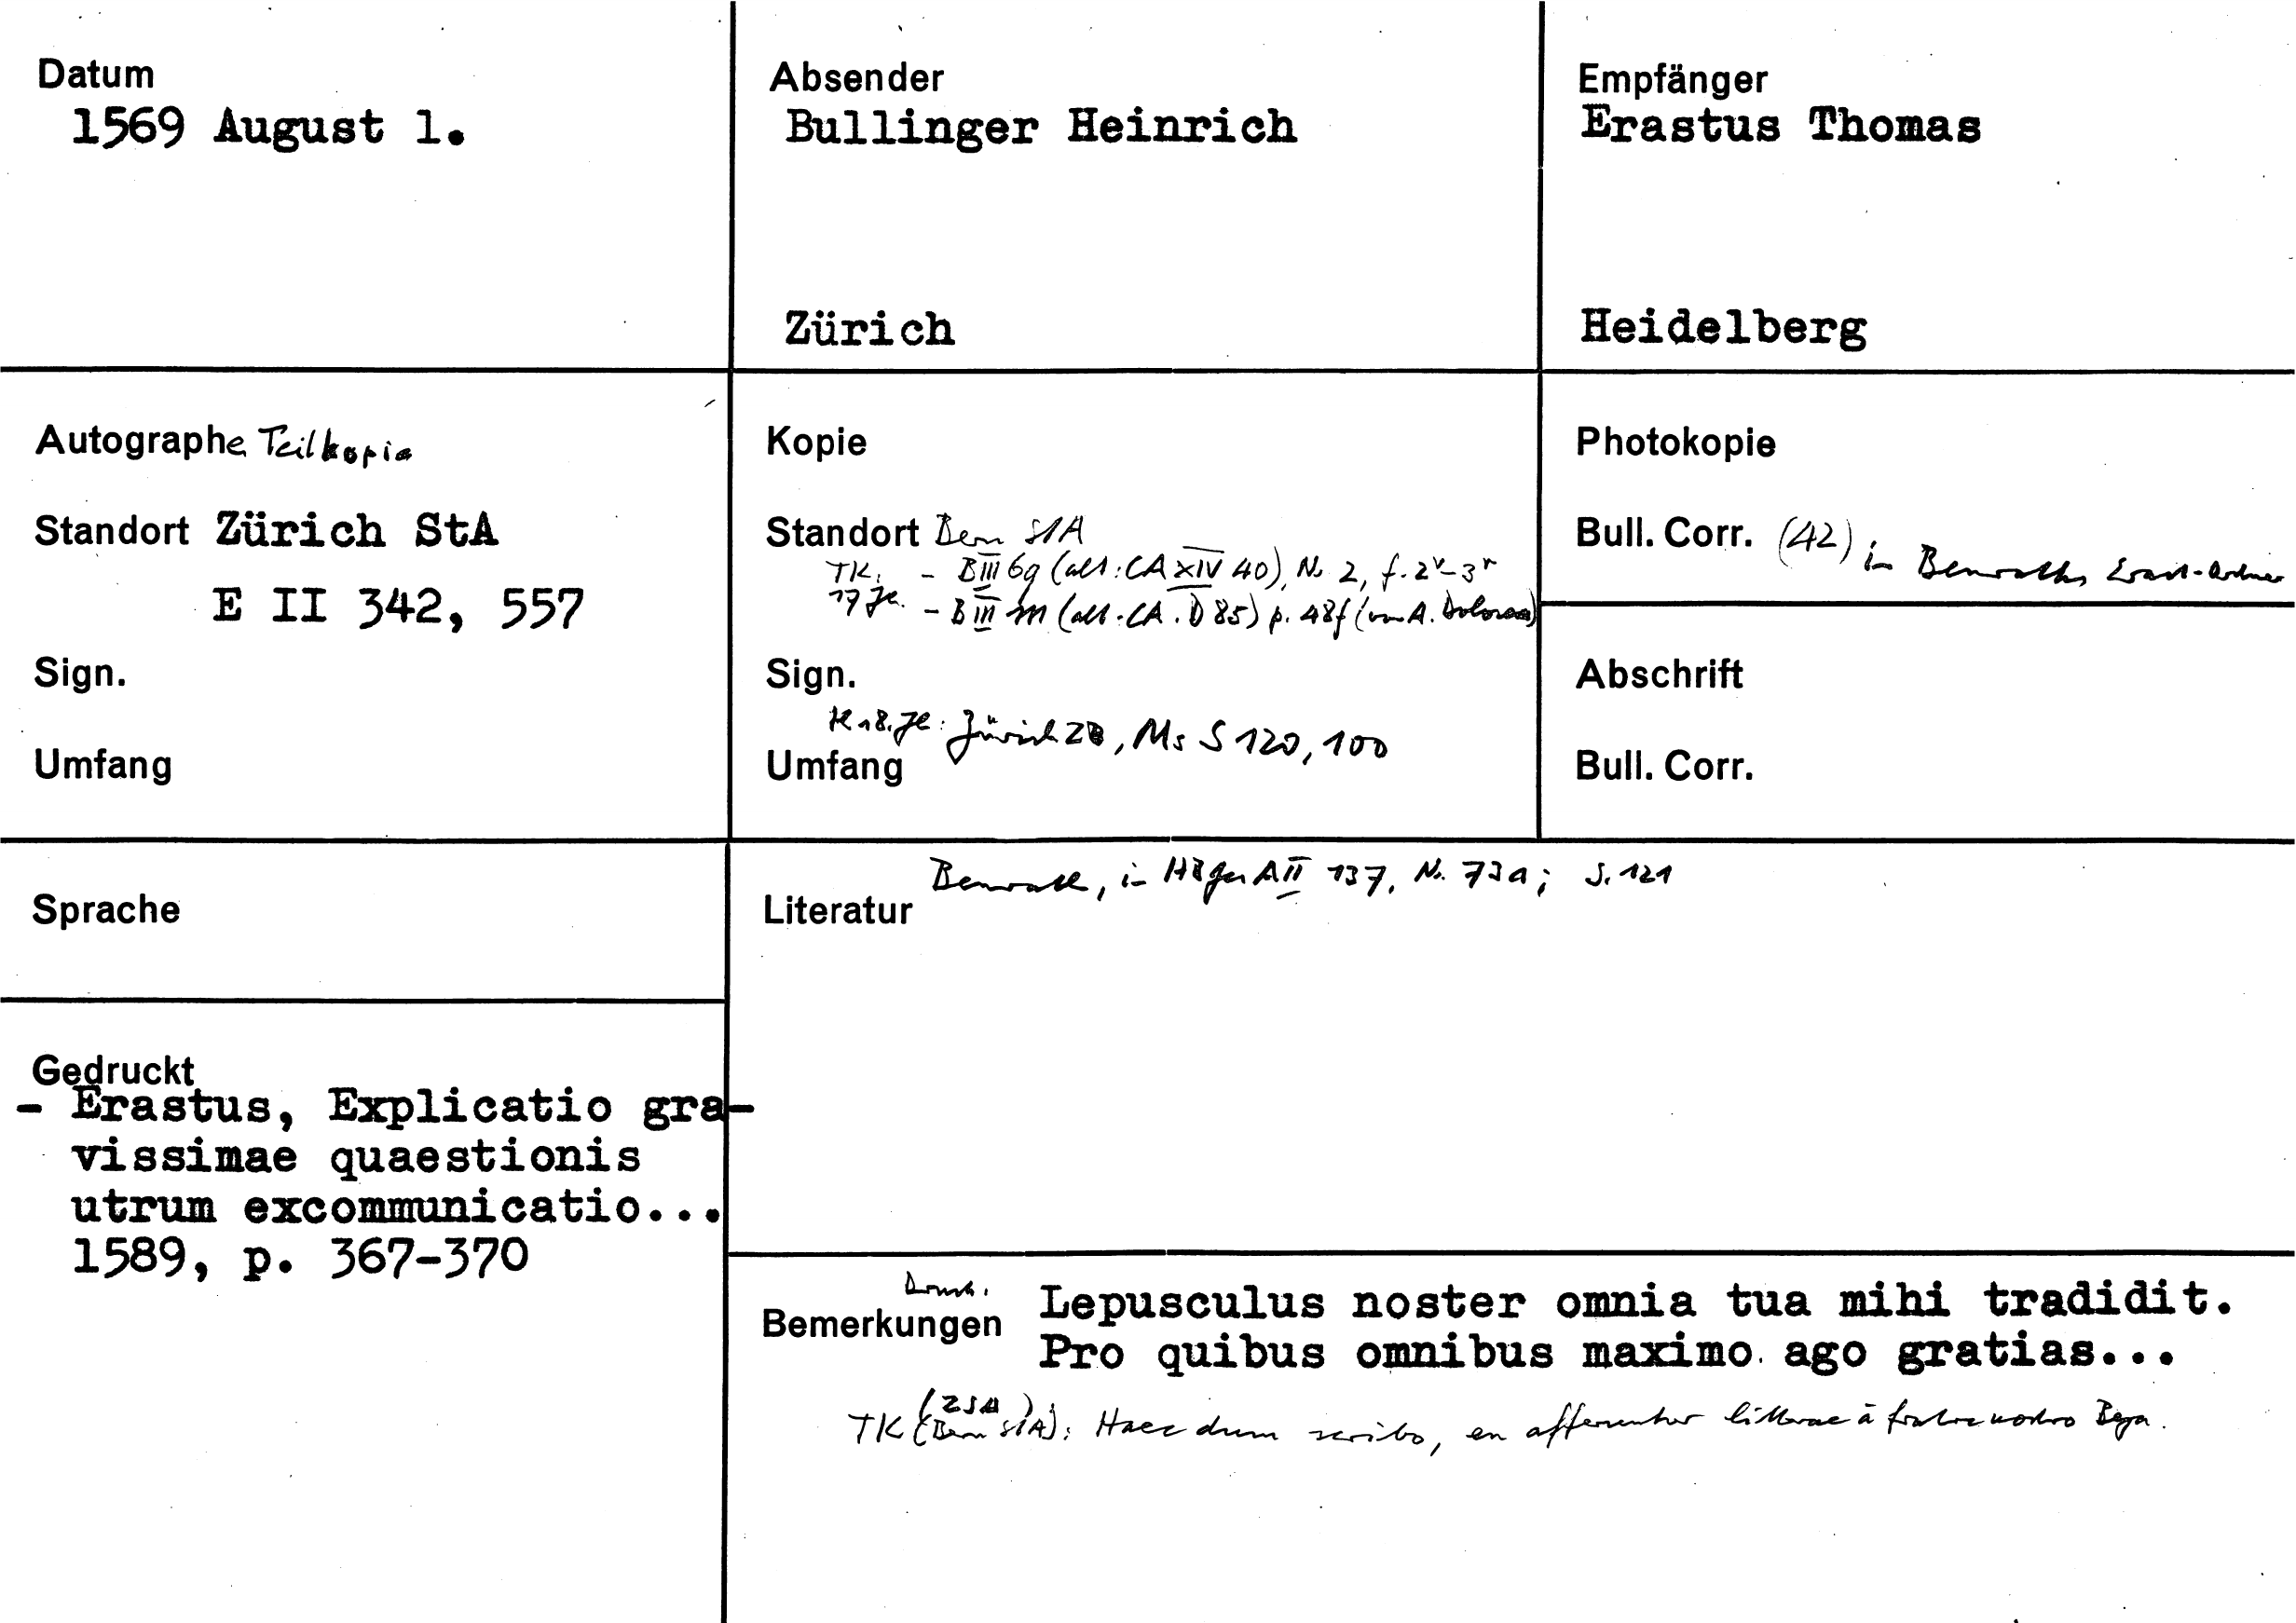 Datum
1569 August 1.
Absender
Bullinger Heinrich
Zürich
Empfänger
Erastus Thomas
Heidelberg
Autographe Teilkopie
Standort Zürich StA
E II 342, 557
Sign.
Umfang
Kopie
Standort Bern StA
TK. - B III 69 (alt: CA XIV 40), Nr 2, f. 2v-3r
17 Jh. - B III (alt: CA. D 85) p. 48f (von A.
Sign.
K 18. Jh: Zürich ZB, Ms S 120, 100
Umfang
Photokopie
Bull. Corr. (42) in Benraths Erast-Ordner
Abschrift
Bull. Corr.
Sprache
Literatur Benrath, in A II 137, Nr. 73a; S. 121
Gedruckt
- Erastus, Explicatio gra-
vissimae quaestionis
utrum excommunicatio...
1589, p. 367-370
Druck.
Bemerkungen Lepusculus noster omnia tua mihi tradidit.
Pro quibus omnibus maximo ago gratias...
(ZStA)
TK (Bern StA): Haec dum scribo, en afferuntur litterae à fratre nostro Beza.